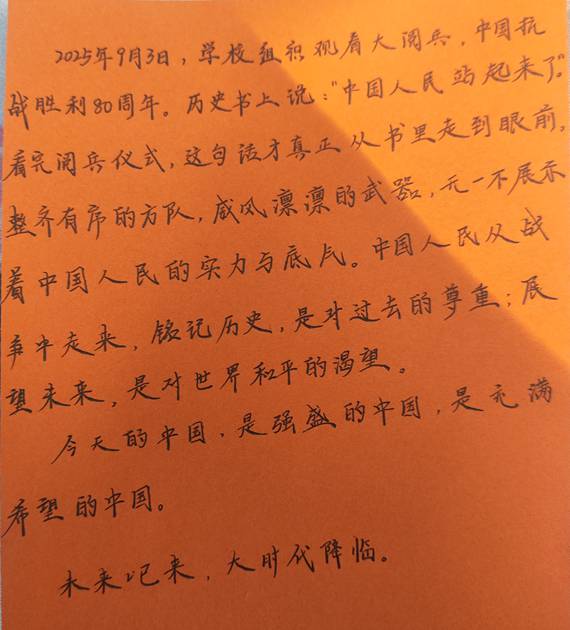 2025年9月3日，学校组织观看大阅兵，中国抗
战胜利80周年。历史书上说：“中国人民站起来了”。
看完阅兵仪式，这句话才真正从书里走到眼前，
整齐有序的方队，威风凛凛的武器，无一不展示
着中国人民的实力与底气。中国人民从战
争中走来，铭记历史，是对过去的尊重；展
望未来，是对世界和平的渴望。
今天的中国，是强盛的中国，是充满
希望的中国。
未来已来，大时代降临。